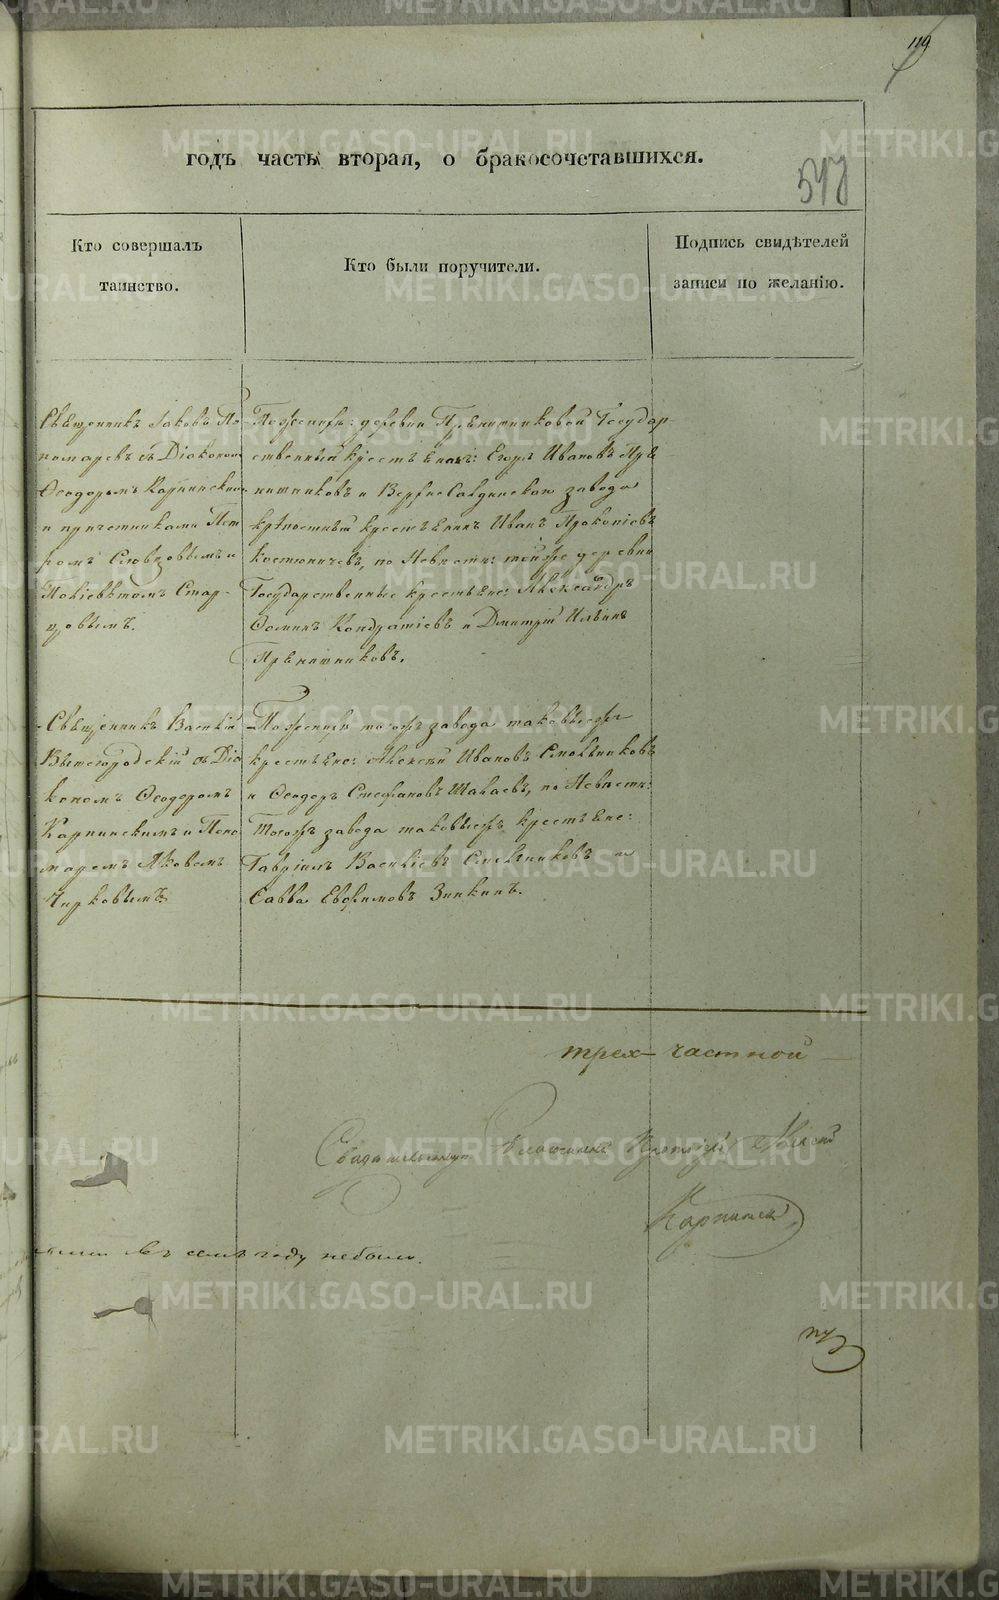 119
годъ часть вторая, о бракосочетавшихся.
548
Кто совершалъ
таинство.
Кто были поручители.
Подпись свидѣтелей
записи по желанію.
Священникъ Іаковъ По-
номаревъ съ Діакономъ
Ѳеодоромъ Карпинскимъ
и причетниками Пет
ромъ Словцовымъ и
Поліевктомъ Стар-
цовымъ.
По женихѣ: деревни Прянишниковой Государ-
ственный крестьянинъ: Егоръ Ивановъ Пря
нишниковъ и Верхнесалдинскаго завода
крѣпостный крестьянинъ Иванъ Прокопіевъ
по Невѣстѣ: тойже деревни
Государственные крестьяне: Александръ
Ѳоминъ Кондратіевъ и Дмитрій Ильинъ
Прянишниковъ.
Священникъ Василій
Вышегородскій съ Діа
кономъ Ѳеодоромъ
Карпинскимъ и Поно
маремъ Яковомъ
Чирковымъ.
По женихѣ тогожъ завода таковыежъ
крестьяне: Алексѣй Ивановъ
и Ѳеодоръ Стефановъ по Невѣстѣ:
Тогожъ завода таковыежъ крестьяне:
Гавріилъ Василіевъ и
Савва Евфимовъ Зинкинъ.
трех-частной
Свидѣтельствовалъ Протоіерей Алексѣй
Карпинскій
въ семъ году небыло.
METRIKI.GASO-URAL.RU